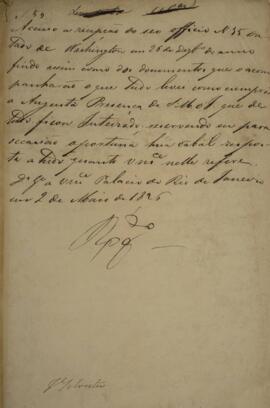 Accuso a recepção do seo officio N. 35 da
tado de Washington em 26 de Dezb.º do anno
findo assim como dos documentos que o acom
panharão o que tudo levei como cumpria
a Augusta Presença de S. M. o I. que de
tudo ficou Inteirado reservando me para
occasião opportuna huma cabal respos
ta a tudo quanto V m.ce nelle refere.
D.s G.e a V m.ce Palacio do Rio de Janeiro
em 2 de Maio de 1826